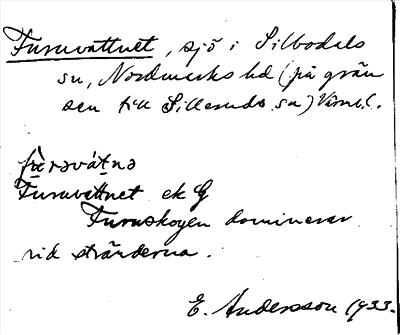 Furuvattnet, sjö i Silbodals
sn, Nordmarks hd (på grän
sen till Silleruds sn) Värml.
fùrəvátnə
Furuvattnet ek G
Furuskogen dominerar
vid stränderna.
E. Andersson 1933.